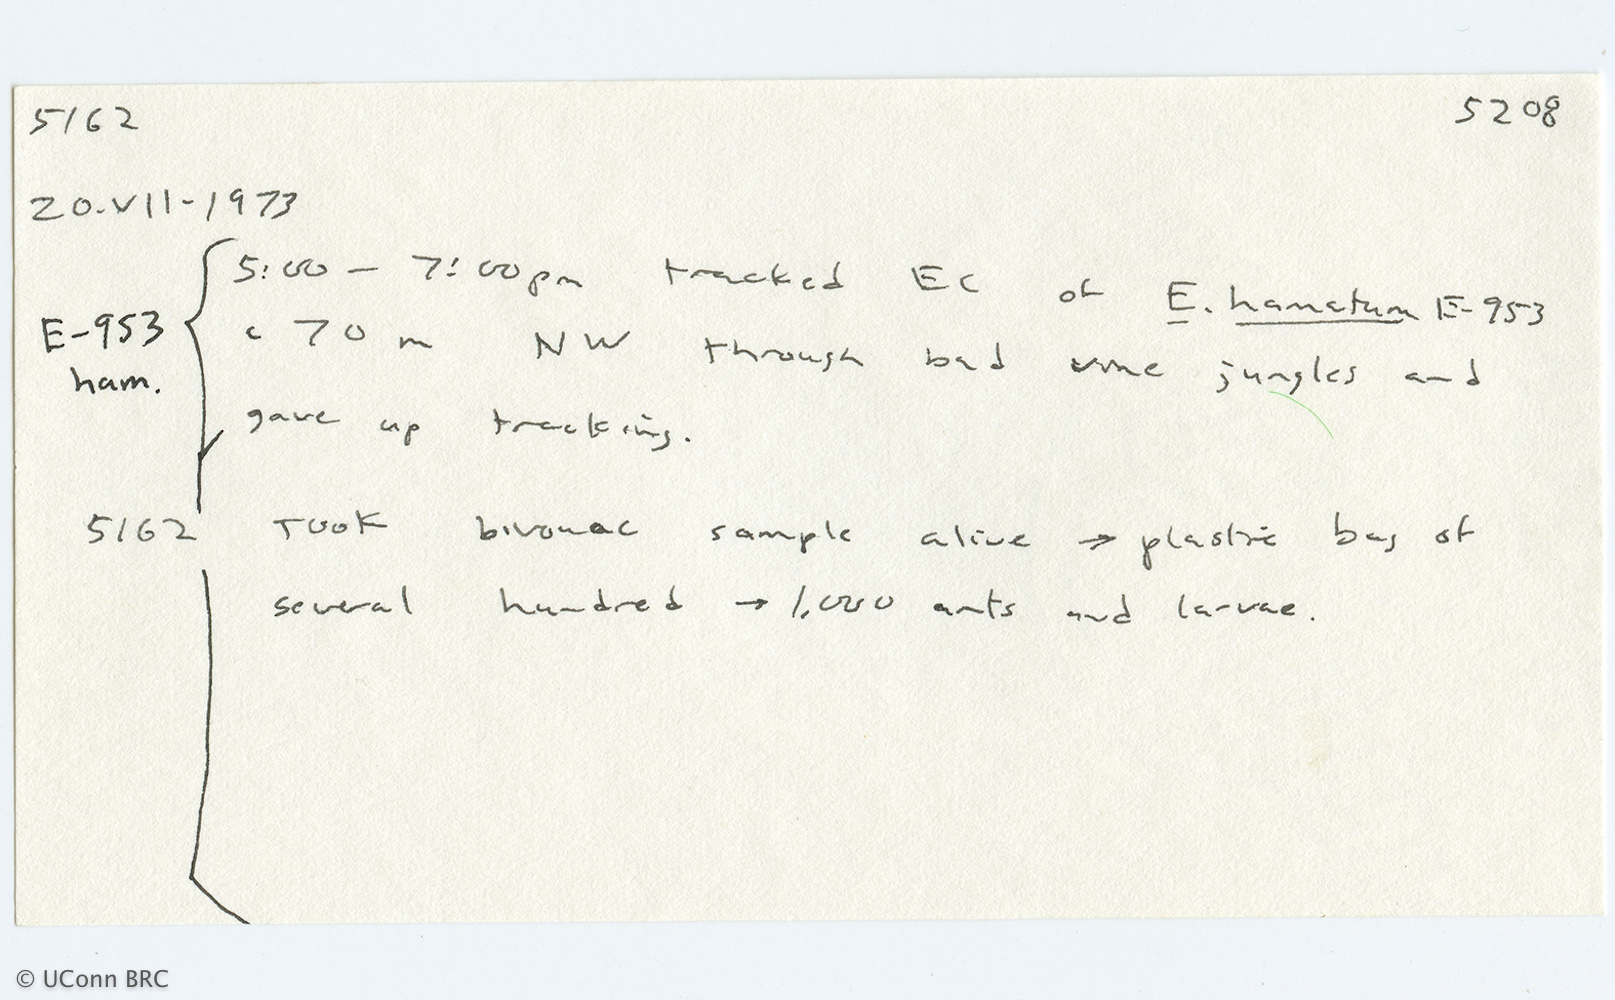 5162 5208
20.VII-1973
5:00 - 7:00pm tracked EC of E. hamatum E-953
E-953 c 70 m NW through bad vine jungles and
ham.
gave up tracking.
5162 Took bivouac sample alive → plastic bag of
several hundred → 1,000 ants and larvae.
© UConn BRC